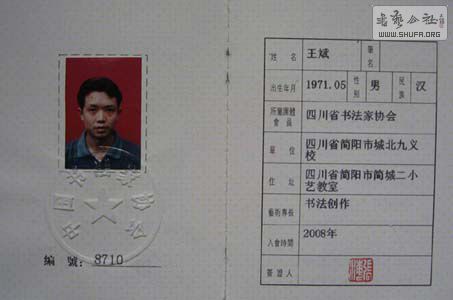 书艺公社
WWW.SHUFA.ORG
編 號：8710
姓名 王斌 筆名
出生年月 1971.05 性别 男 民族 汉
所屬團體會員 四川省书法家协会
單位 四川省简阳市城北九义校
住址 四川省简阳市简城二小艺教室
藝術專長 书法创作
入會時間 2008年
簽證人